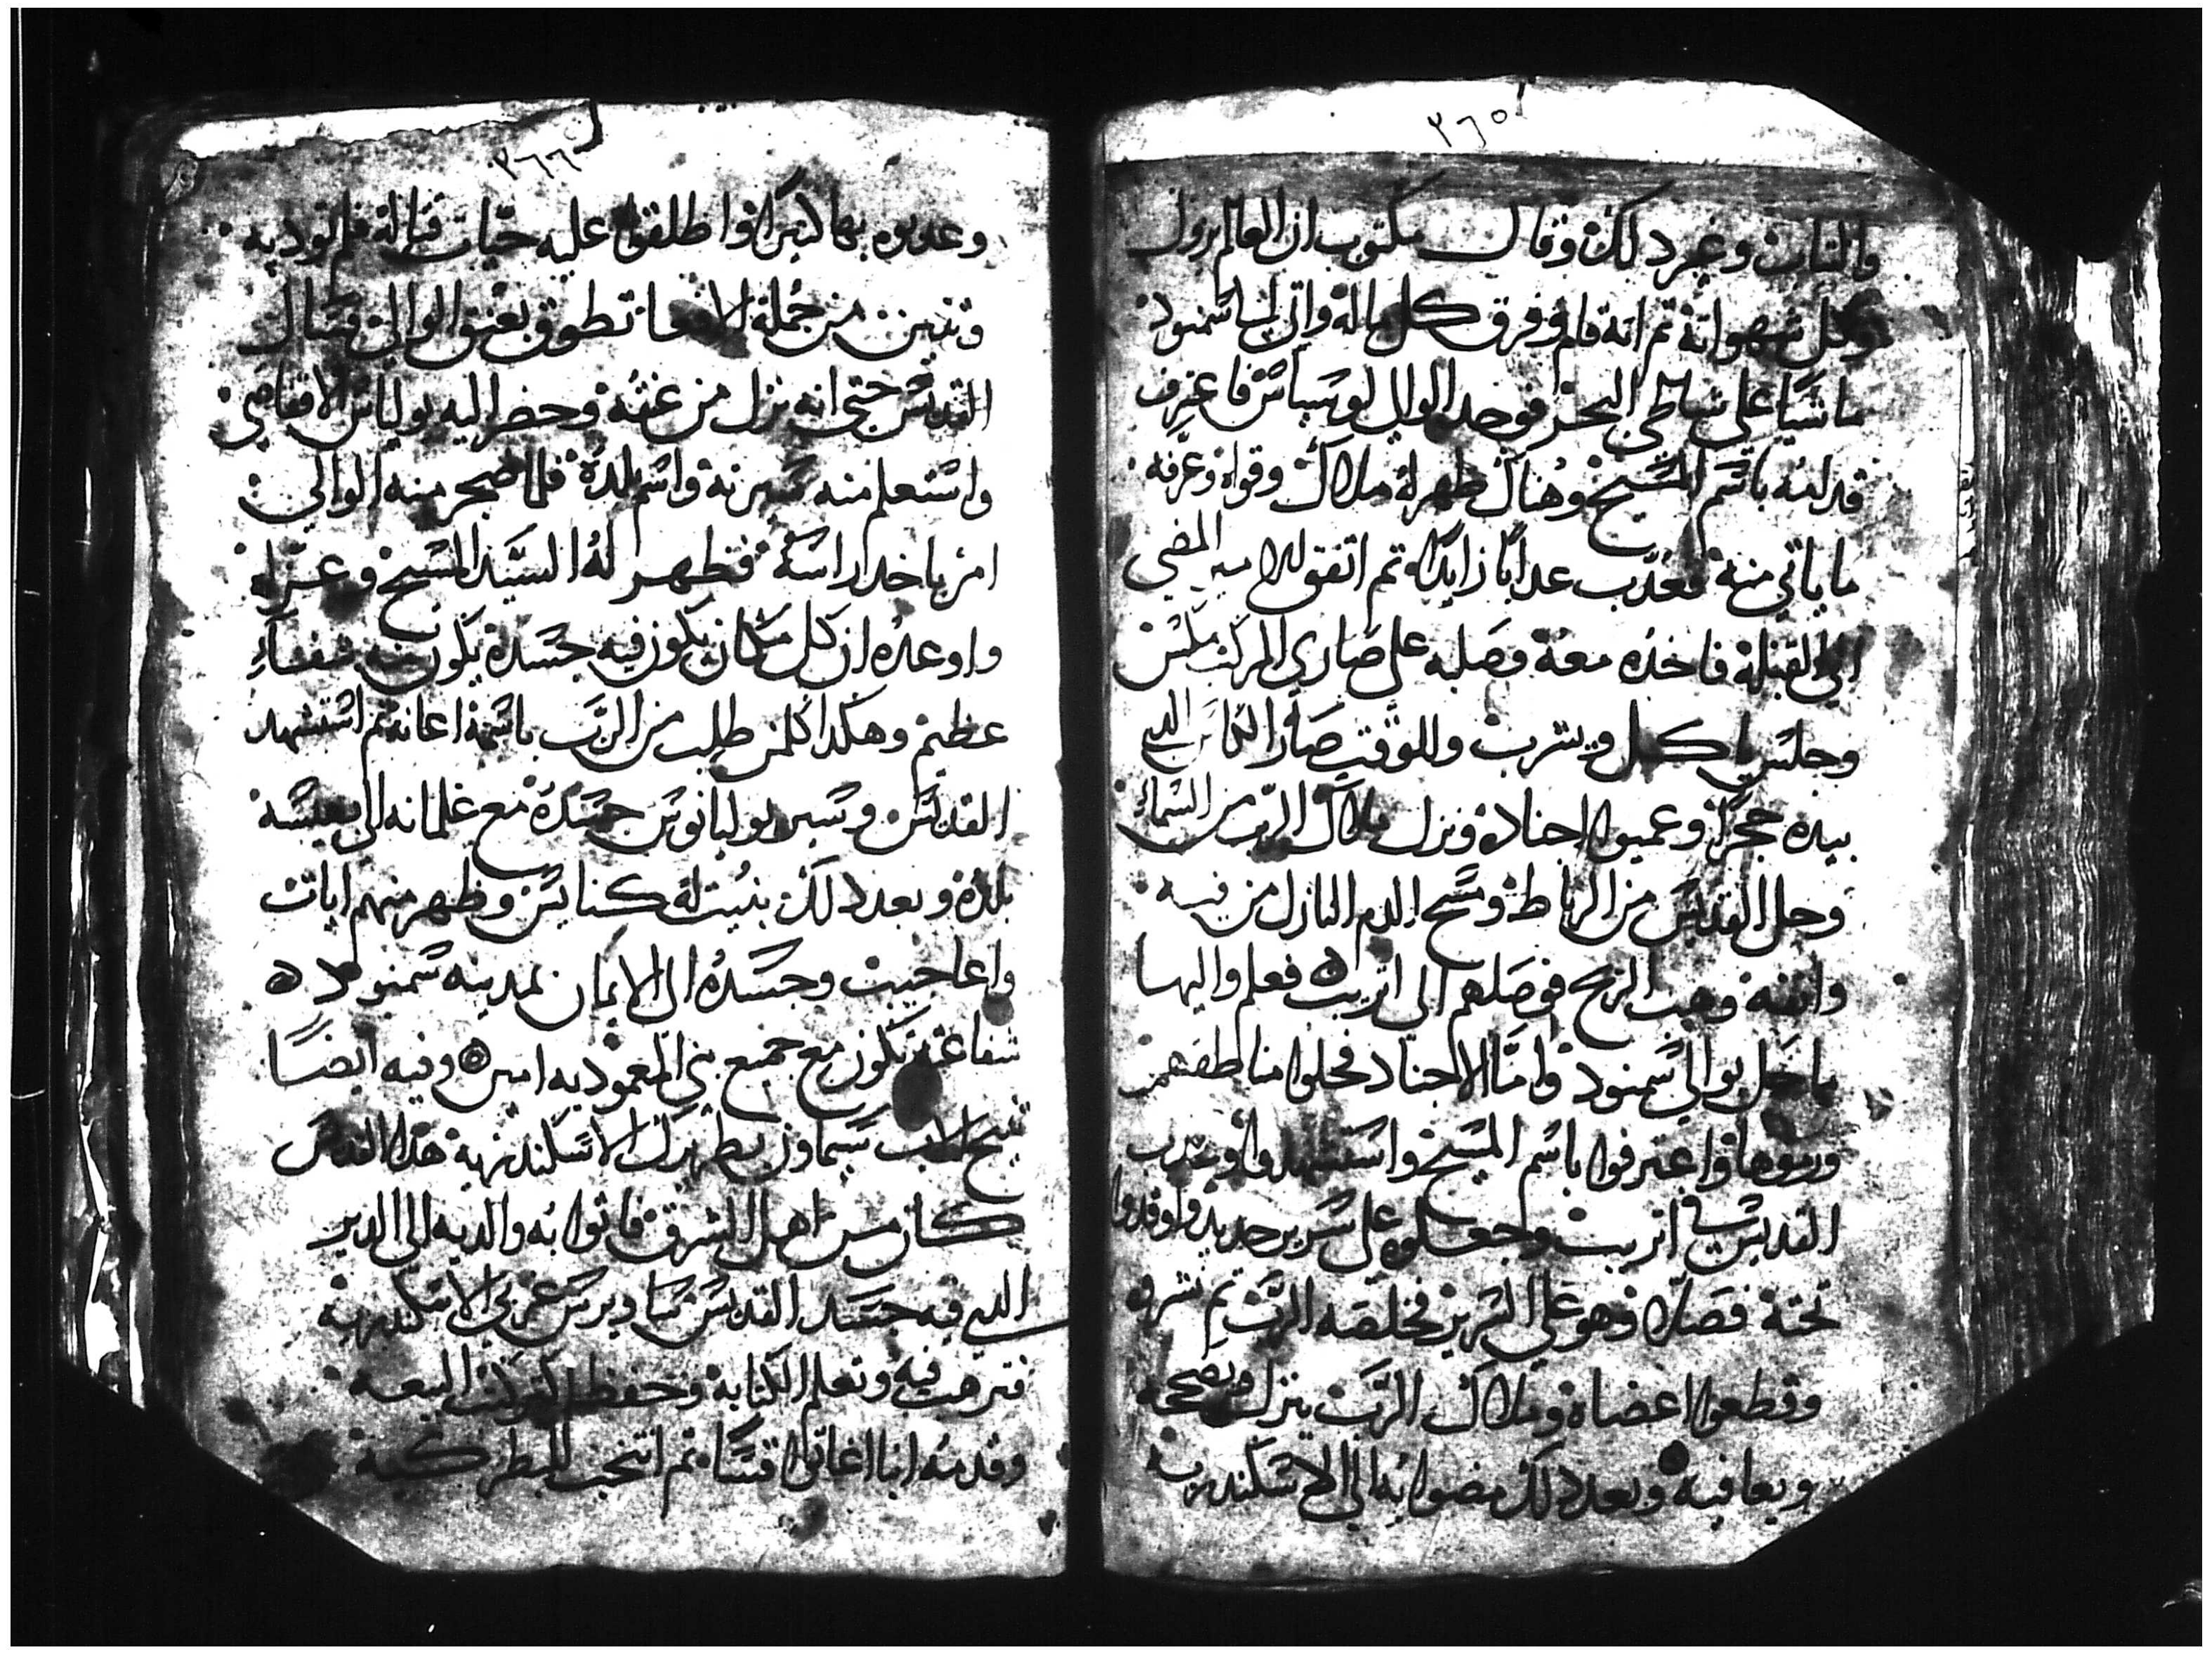 ٢٦٥
والثياب وغير دلك وقال مكتوب ان العالم يزول
وكل شهواته ثم انه قام وفرق كل ماله واتي الي سمنود
ماشيا علي شاطي البحر فوجد الوالي لوسيانس فاعترف
قدامه باسم المسيح وهناك ظهر له ملاك وقواه وعرفه
ما ياتي منه فعدب عدابا زايدا ثم اتفق للامير المضي
الي القبلة فاخده معه وصلبه علي صاري المركب منكس
وجلس ياكل ويشرب وللوقت صار الكاس الدي
بيده حجرا وعميوا اجناده ونزل ملاك الرب من السماء
وحل القديس من الرباط ومسح الدم النازل من فيه
وانفه وهبت الريح فوصلهم الي اتريب فعلم واليها
ما حل بوالي سمنود واما الاجناد فحلوا مناطقهم
ورموها واعترفوا باسم المسيح واستشهدوا وعدب
القديس في اتريب وجعلوه علي سرير حديد واوقدوا
تحته فصلا وهو علي السرير فخلصه الرب ثم نشروه
وقطعوا اعضاه وملاك الرب ينزل ويصححه
ويعافيه وبعد دلك مضوا به الي الاسكندرية
٢٦٦
وعدبوه بها كثيرا واطلقوا عليه حيات قتالة فلم توديه
وتنين من جملة الافعا تطوق بعنق الوالي فسال
القديس حتي انه نزل من عنقه وحضر اليه يولياس الاقفاصي
واستعلم منه سيرته واسم بلده فلما ضجر منه الوالي
امر باخد راسه فظهر له السيد المسيح وعزاه
واوعده ان كل مكان يكون فيه جسده يكون فيه شفاء
عظيم وهكدا كلمن طلب من الرب باسمه اعانه ثم استشهد
القديس وسير يوليانوس جسده مع غلمانه الي
بلده وبعد دلك بنيت له كنايس وظهر منهم ايات
واعاجيب وجسده الي الان بمدينه سمنود
شفاعته تكون مع جميع بني المعموديه امين وفيه ايضا
تنيح الاب سيماون بطريرك الاسكندرية هدا القديس
كان من اهل الشرق فاتوا به والديه الي الدير
الدي فيه جسد القديس ساويرس غربي الاسكندرية
فترهب فيه وتعلم الكتابة وحفظ كتب البيعة
وقدمه انبا اغاتوا قسا ثم انتخب للبطركية